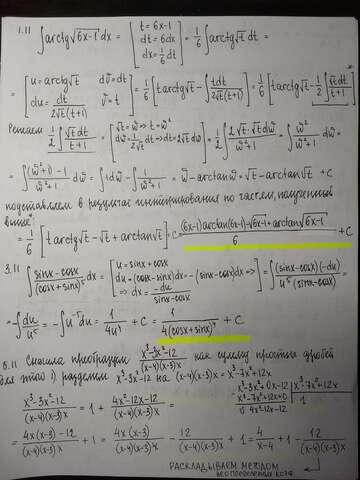 1.11 ∫arctg√(6x-1) dx = [t = 6x-1, dt = 6dx, dx = 1/6 dt] = 1/6 ∫arctg√t dt =
= [u = arctg√t, dv = dt, du = dt/(2√t(t+1)), v = t] = 1/6 [t arctg√t - ∫ t dt/(2√t(t+1))] = 1/6 [t arctg√t - 1/2 ∫ √t dt/(t+1)]
Решаем 1/2 ∫ √t dt/(t+1) = [√t = w ⇒ t = w², dw = 1/(2√t) dt ⇒ dt = 2√t dw] = 1/2 ∫ 2√t·√t dw/(w²+1) = ∫ w²/(w²+1) dw =
= ∫ ((w²+1)-1)/(w²+1) dw = ∫1dw - ∫ 1/(w²+1) dw = w - arctan w = √t - arctan√t + C
подставляем в результат интегрирования по частям, полученный
выше:
= 1/6 [t arctg√t - √t + arctan√t] + C = ((6x-1) arctan(6x-1) - √(6x-1) + arctan√(6x-1))/6 + C
3.11 ∫ (sinx - cosx)/(cosx + sinx)⁵ dx = [u = sinx + cosx, du = (cosx - sinx)dx = -(sinx - cosx)dx ⇒ ⇒ dx = -du/(sinx - cosx)] = ∫ (sinx - cosx)(-du)/(u⁵(sinx - cosx)) =
= -∫ du/u⁵ = -∫ u⁻⁵ du = 1/(4u⁴) + C = 1/(4(cosx + sinx)⁴) + C
6.11 Сначала преобразуем (x³-3x²-12)/((x-4)(x-3)x) как сумму простых дробей
для этого 1) разделим x³-3x²-12 на (x-4)(x-3)x = x³-7x²+12x
(x³-3x²-12)/((x-4)(x-3)x) = 1 + (4x²-12x-12)/((x-4)(x-3)x)
x³-3x²+0x-12 | x³-7x²+12x
x³-7x²+12x+0 | 1
0 4x²-12x-12
= (4x(x-3)-12)/((x-4)(x-3)x) + 1 = 4x(x-3)/((x-4)(x-3)x) - 12/((x-4)(x-3)x) + 1 = 4/(x-4) + 1 - 12/((x-4)(x-3)x)
РАСКЛАДЫВАЕМ МЕТОДОМ